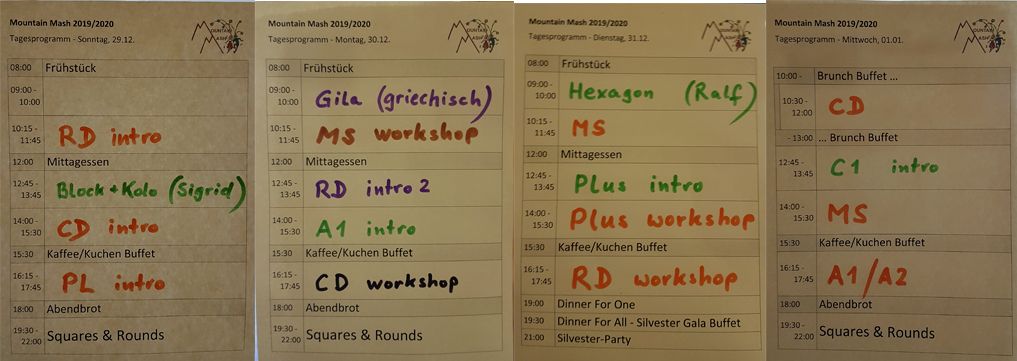 Mountain Mash 2019/2020
Tagesprogramm - Sonntag, 29.12.
MOUNTAIN
MASH
08:00 Frühstück
09:00 -
10:00
10:15 -
11:45 RD intro
12:00 Mittagessen
12:45 -
13:45 Block + Kolo (Sigrid)
14:00 -
15:30 CD intro
15:30 Kaffee/Kuchen Buffet
16:15 -
17:45 PL intro
18:00 Abendbrot
19:30 -
22:00 Squares & Rounds
Mountain Mash 2019/2020
Tagesprogramm - Montag, 30.12.
MOUNTAIN
MASH
08:00 Frühstück
09:00 -
10:00 Gila (griechisch)
10:15 -
11:45 MS workshop
12:00 Mittagessen
12:45 -
13:45 RD intro 2
14:00 -
15:30 A1 intro
15:30 Kaffee/Kuchen Buffet
16:15 -
17:45 CD workshop
18:00 Abendbrot
19:30 -
22:00 Squares & Rounds
Mountain Mash 2019/2020
Tagesprogramm - Dienstag, 31.12.
MOUNTAIN
MASH
08:00 Frühstück
09:00 -
10:00 Hexagon (Ralf)
10:15 -
11:45 MS
12:00 Mittagessen
12:45 -
13:45 Plus intro
14:00 -
15:30 Plus workshop
15:30 Kaffee/Kuchen Buffet
16:15 -
17:45 RD workshop
19:00 Dinner For One
19:30 Dinner For All - Silvester Gala Buffet
21:00 Silvester-Party
Mountain Mash 2019/2020
Tagesprogramm - Mittwoch, 01.01.
MOUNTAIN
MASH
10:00 - Brunch Buffet ...
10:30 -
12:00 CD
- 13:00 ... Brunch Buffet
12:45 -
13:45 C1 intro
14:00 -
15:30 MS
15:30 Kaffee/Kuchen Buffet
16:15 -
17:45 A1/A2
18:00 Abendbrot
19:30 -
22:00 Squares & Rounds